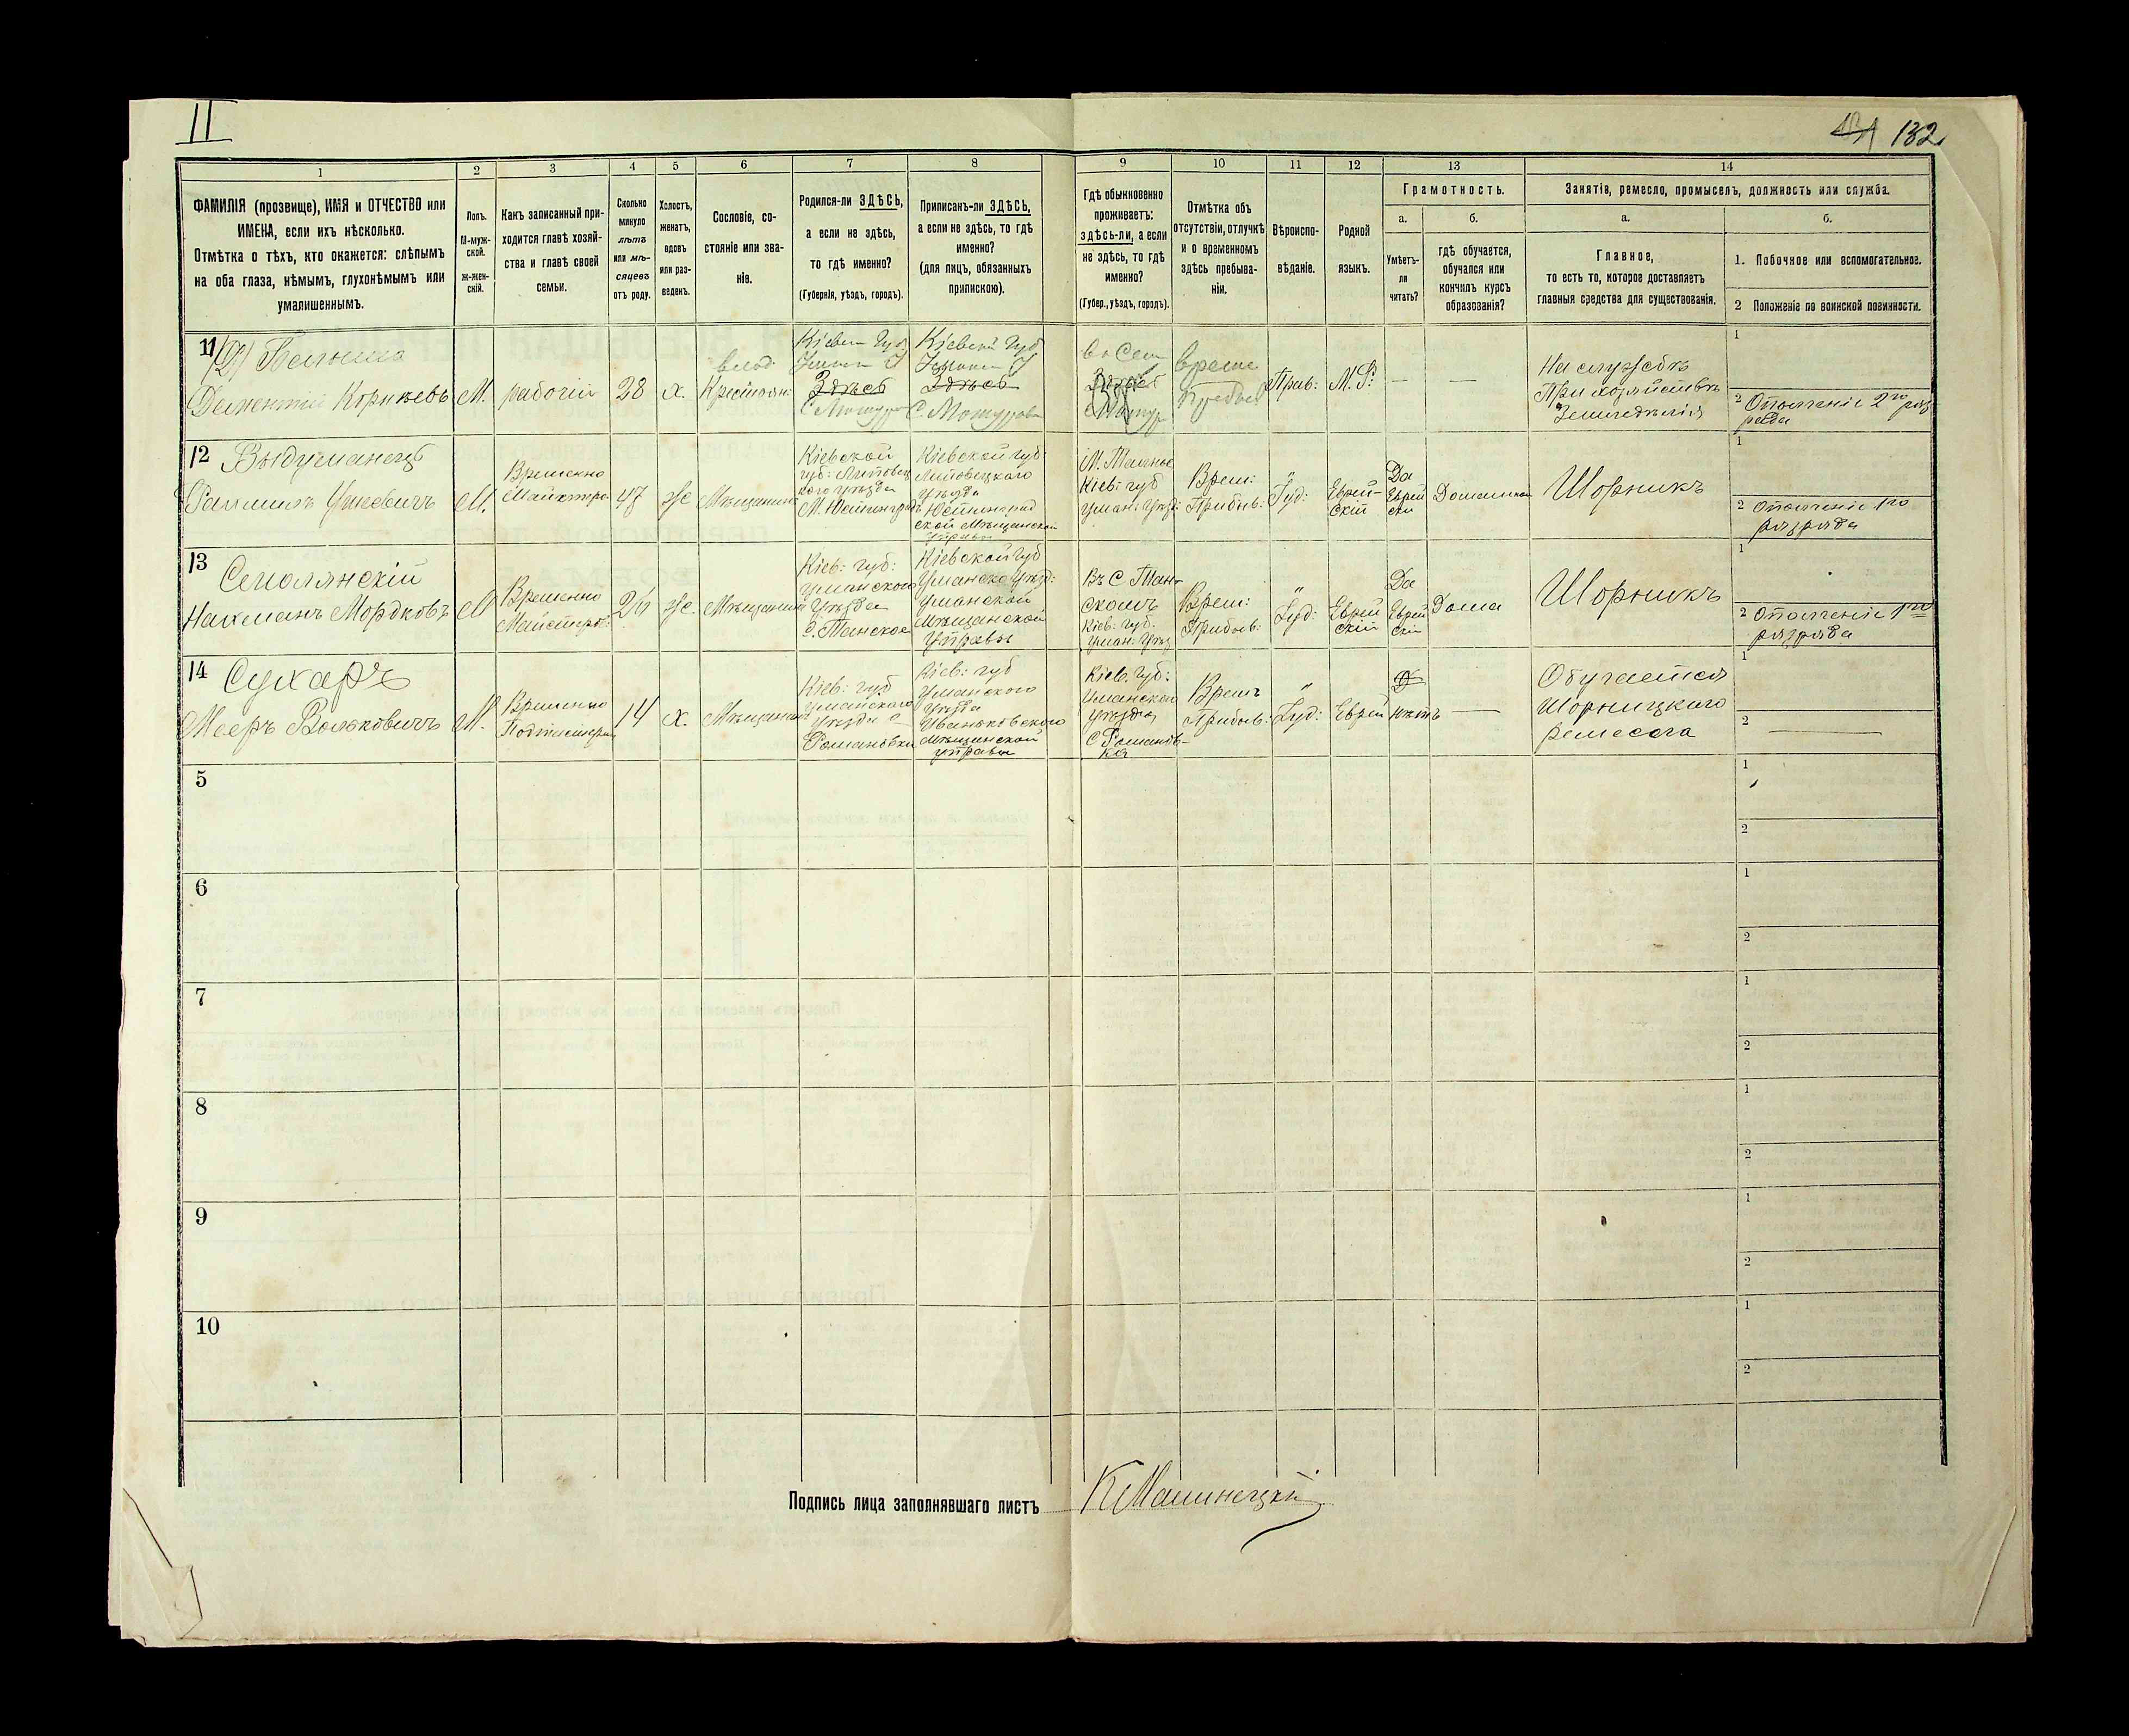 II
132
1 2 3 4 5 6 7 8 9 10 11 12 13 14
ФАМИЛІЯ (прозвище), ИМЯ и ОТЧЕСТВО или
ИМЕНА, если ихъ нѣсколько.
Отмѣтка о тѣхъ, кто окажется: слѣпымъ
на оба глаза, нѣмымъ, глухонѣмымъ или
умалишеннымъ.
Полъ.
М-муж-
ской.
ж-жен-
скій.
Какъ записанный при-
ходится главѣ хозяй-
ства и главѣ своей
семьи.
Сколько
минуло
лѣтъ
или мѣ-
сяцевъ
отъ роду.
Холостъ,
женатъ,
вдовъ
или раз-
веденъ.
Сословіе, со-
стояніе или зва-
ніе.
Родился-ли ЗДѢСЬ,
а если не здѣсь,
то гдѣ именно?
(Губернія, уѣздъ, городъ).
Приписанъ-ли ЗДѢСЬ,
а если не здѣсь, то гдѣ
именно?
(для лицъ, обязанныхъ
припискою).
Гдѣ обыкновенно
проживаетъ:
здѣсь-ли, а если
не здѣсь, то гдѣ
именно?
(Губер., уѣздъ, городъ).
Отмѣтка объ
отсутствіи, отлучкѣ
и о временномъ
здѣсь пребыва-
ніи.
Вѣроиспо-
вѣданіе.
Родной
языкъ.
Грамотность.
а.
Умѣетъ-
ли
читать?
б.
гдѣ обучается,
обучался или
кончилъ курсъ
образованія?
Занятія, ремесло, промыселъ, должность или служба.
а.
Главное,
то есть то, которое доставляетъ
главныя средства для существованія.
б.
1. Побочное или вспомогательное.
2 Положеніе по воинской повинности.
11
Дементий Корнѣевъ
М.
рабочій
28
х.
Крестьян:
Кіевск Губ
Здѣсь
Кіевской Губ
Здѣсь
С. Мотузовка
Прав:
М. Р:
—
—
На службѣ
При хозяйствѣ
Земледѣлія
1
2 Ополченіе 2го раз
ряда
12
Выдуманецъ
М.
Временно
47
ж
Мѣщанинъ
Кіевской
губ: Липовец
кого уѣзда
Кіевской губ:
Липовецкого
уѣзда
ской Мѣщанской
управы
М. Тальное
Кіев: губ
Уман: уѣзд:
Врем:
Прибыв:
Іуд:
Еврей-
скій
Да
Еврей
ски
Шорникъ
1
2 Ополченіе 1го
разряда
13
Смолянскій
Нахманъ Мордковъ
М
Временно
26
ж.
Мѣщанинъ
Кіев: губ:
Уманского
Уѣзда
с. Танское
Кіевской губ
Уманского уѣзд:
Уманской
Мѣщанской
Управы
Въ С Тан-
скомъ
Кіев: губ.
Уман: уѣзд
Врем:
Прибыв:
Іуд:
Еврей
скій
Да
Еврей
скі
Дома
Шорникъ
1
2 Ополченіе 1го
разряда
14
Сухаръ
Мееръ Вольковичъ
М.
Временно
14
х.
Мѣщанинъ
Кіев: губ
Уманского
Уѣзда с
Романовки
Кіев: губ
Уманского
Уѣзда
Иваньковского
Мѣщанской
управы
Кіев. губ:
Уманского
уѣзда
С Романов-
ка
Врем:
Прибыв:
Іуд:
Еврей
нѣтъ
—
Обучается
Шорницкого
ремесла
1
2 —
5
1
2
6
1
2
7
1
2
8
1
2
9
1
2
10
1
2
Подпись лица заполнявшаго листъ